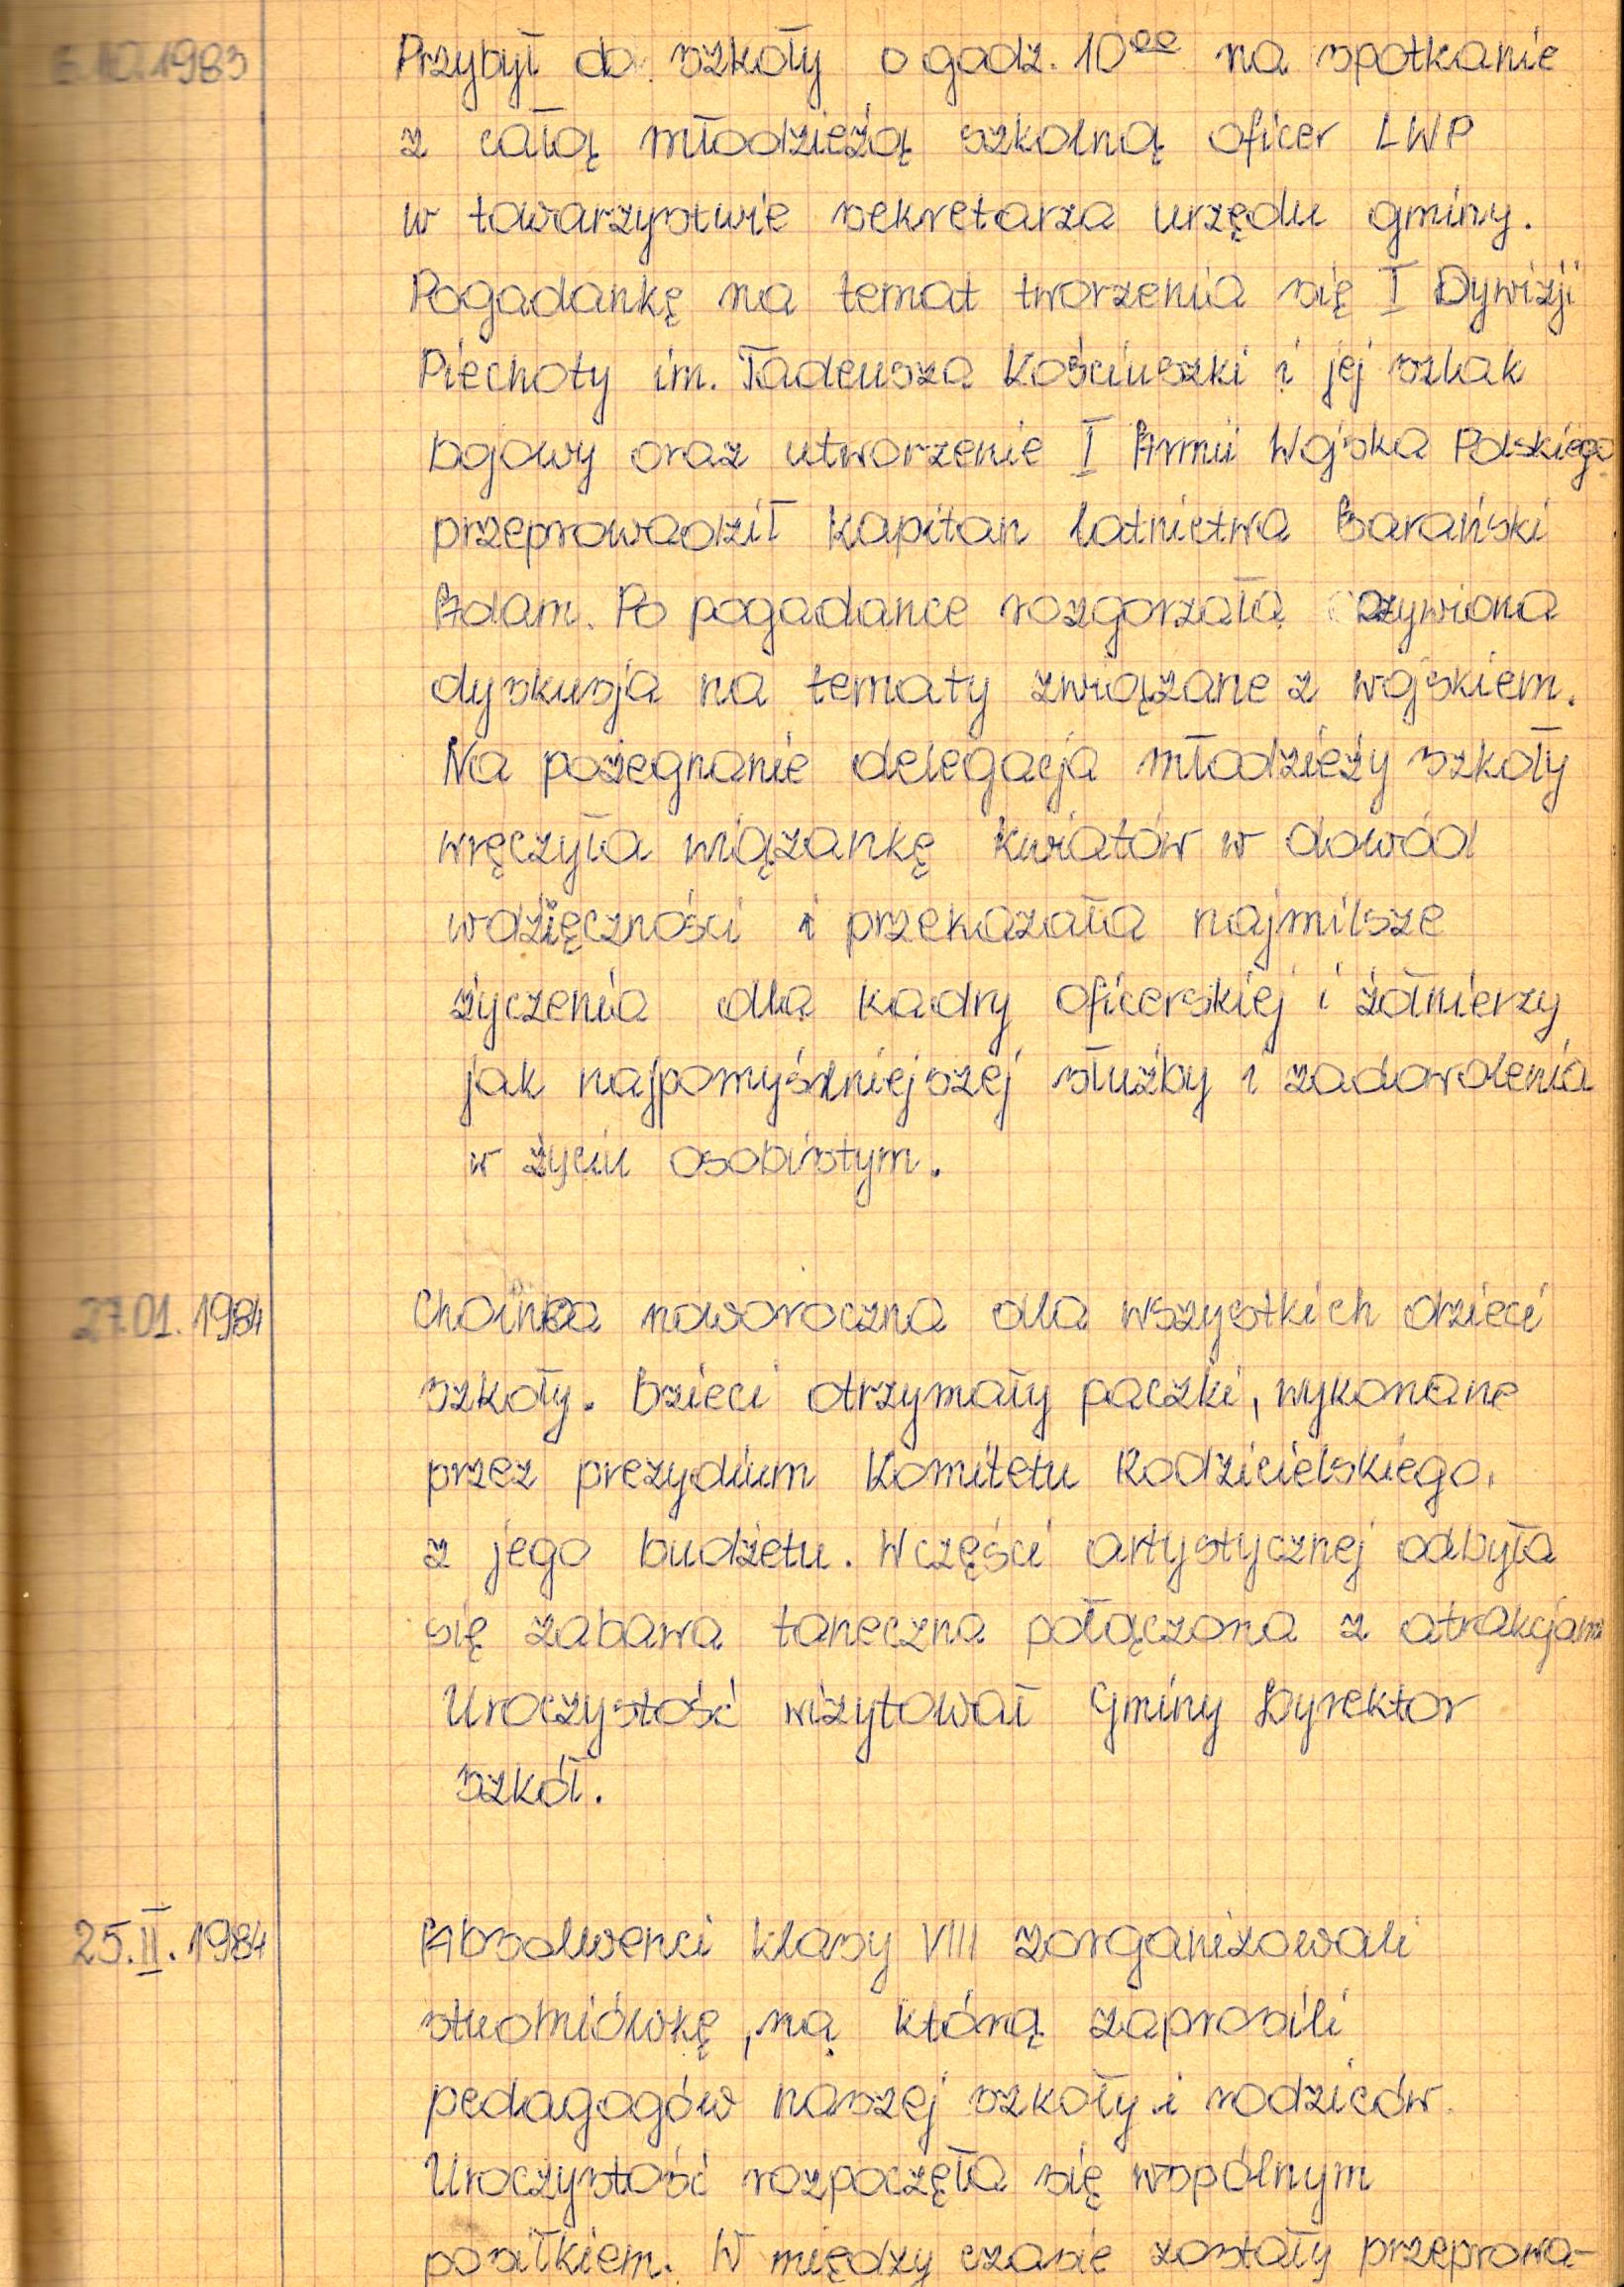 6.10.1983 Przybył do szkoły o godz. 10⁰⁰ na spotkanie
z całą młodzieżą szkolną oficer LWP
w towarzystwie sekretarza urzędu gminy.
Pogadankę na temat tworzenia się I Dywizji
Piechoty im. Tadeusza Kościuszki i jej szlak
bojowy oraz utworzenie I Armii Wojska Polskiego
przeprowadził kapitan lotnictwa Barański
Adam. Po pogadance rozgorzała ożywiona
dyskusja na tematy związane z wojskiem.
Na pożegnanie delegacja młodzieży szkoły
wręczyła wiązankę kwiatów w dowód
wdzięczności i przekazała najmilsze
życzenia dla kadry oficerskiej i żołnierzy
jak najpomyślniejszej służby i zadowolenia
w życiu osobistym.
27.01.1984 Choinka noworoczna dla wszystkich dzieci
szkoły. Dzieci otrzymały paczki, wykonane
przez prezydium Komitetu Rodzicielskiego.
z jego budżetu. W części artystycznej odbyła
się zabawa taneczna połączona z atrakcjami
Uroczystość wizytował Gminy Dyrektor
szkół.
25.II.1984 Absolwenci klasy VIII zorganizowali
studniówkę, na którą zaprosili
pedagogów naszej szkoły i rodziców.
Uroczystość rozpoczęła się wspólnym
posiłkiem. W między czasie zostały przeprowa-